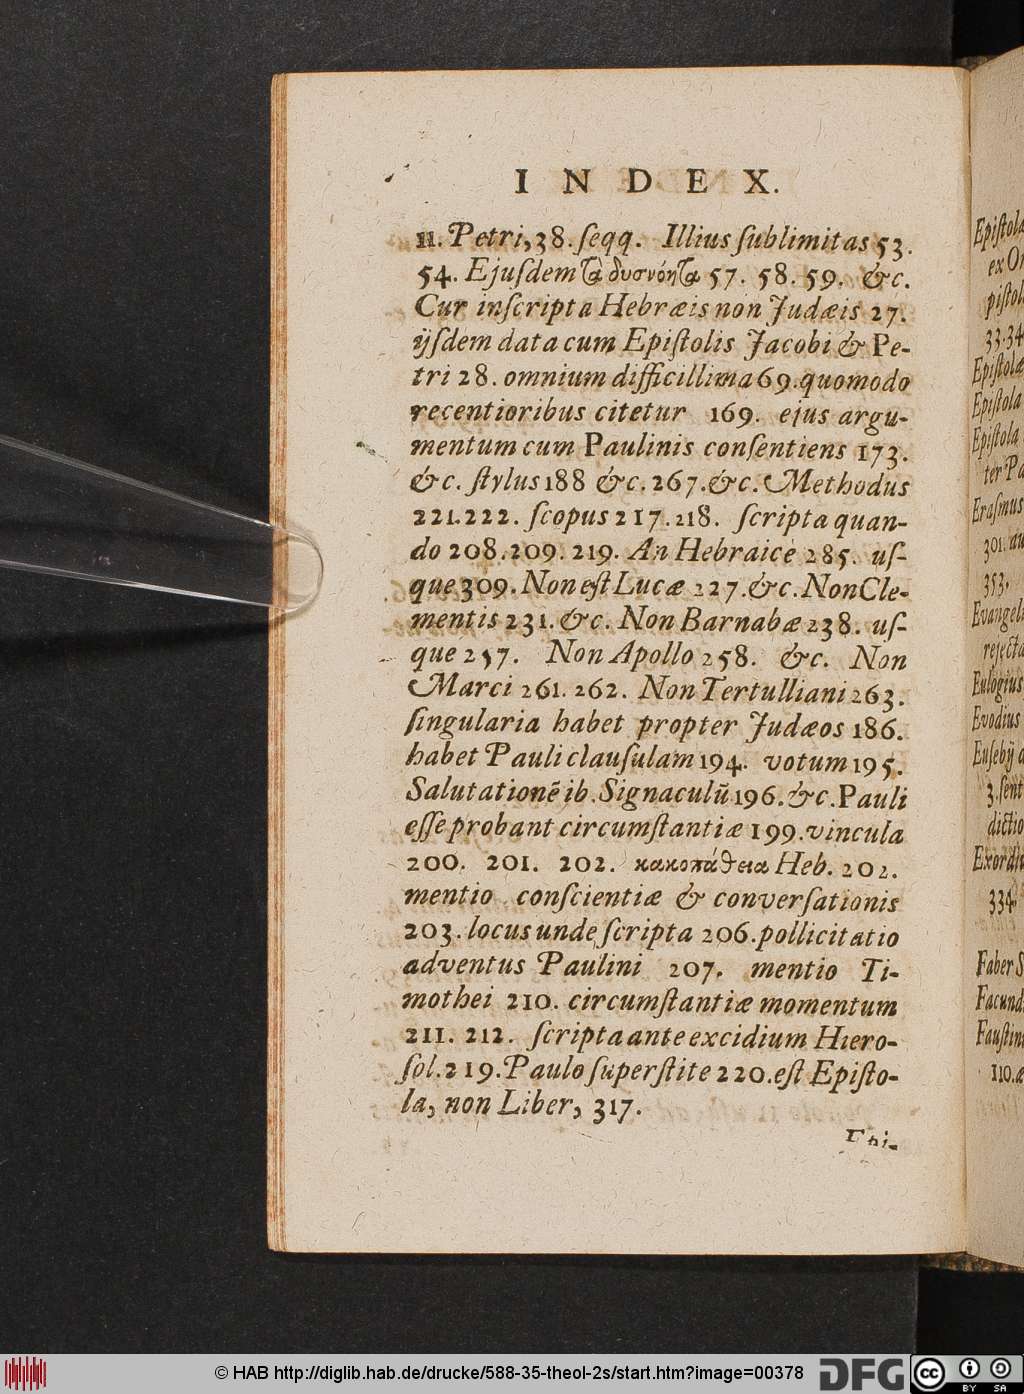 INDEX.
II. Petri, 38. ſeqq. Illius ſublimitas 53.
54. Ejuſdem τὰ δυσνόητα 57. 58. 59. &c.
Cur inſcripta Hebræis non Judæis 27.
ijſdem data cum Epiſtolis Jacobi & Pe-
tri 28. omnium difficillima 69. quomodo
recentioribus citetur 169. ejus argu-
mentum cum Paulinis conſentiens 173.
&c. ſtylus 188 &c. 267. &c. Methodus
221. 222. ſcopus 217. 218. ſcripta quan-
do 208. 209. 219. An Hebraice 285. uſ-
que 309. Non eſt Lucæ 227. &c. Non Cle-
mentis 231. &c. Non Barnabæ 238. uſ-
que 257. Non Apollo 258. &c. Non
Marci 261. 262. Non Tertulliani 263.
ſingularia habet propter Judæos 186.
habet Pauli clauſulam 194. votum 195.
Salutationē ib. Signaculū 196. &c. Pauli
eſſe probant circumſtantiæ 199. vincula
200. 201. 202. κακοπάθεια Heb. 202.
mentio conſcientiæ & converſationis
203. locus unde ſcripta 206. pollicitatio
adventus Paulini 207. mentio Ti-
mothei 210. circumſtantiæ momentum
211. 212. ſcripta ante excidium Hiero-
ſol. 219. Paulo ſuperſtite 220. eſt Epiſto-
la, non Liber, 317.
Epi-
Epiſtola
ex
33. 34
Epiſtolæ
Epiſtola
Epiſtola
ter
Eraſmus
301.
353.
rejecta
Eulogius
Evodius
Euſebij
3.
334.
Faber
110.
© HAB http://diglib.hab.de/drucke/588-35-theol-2s/start.htm?image=00378
DFG
cc
BY SA